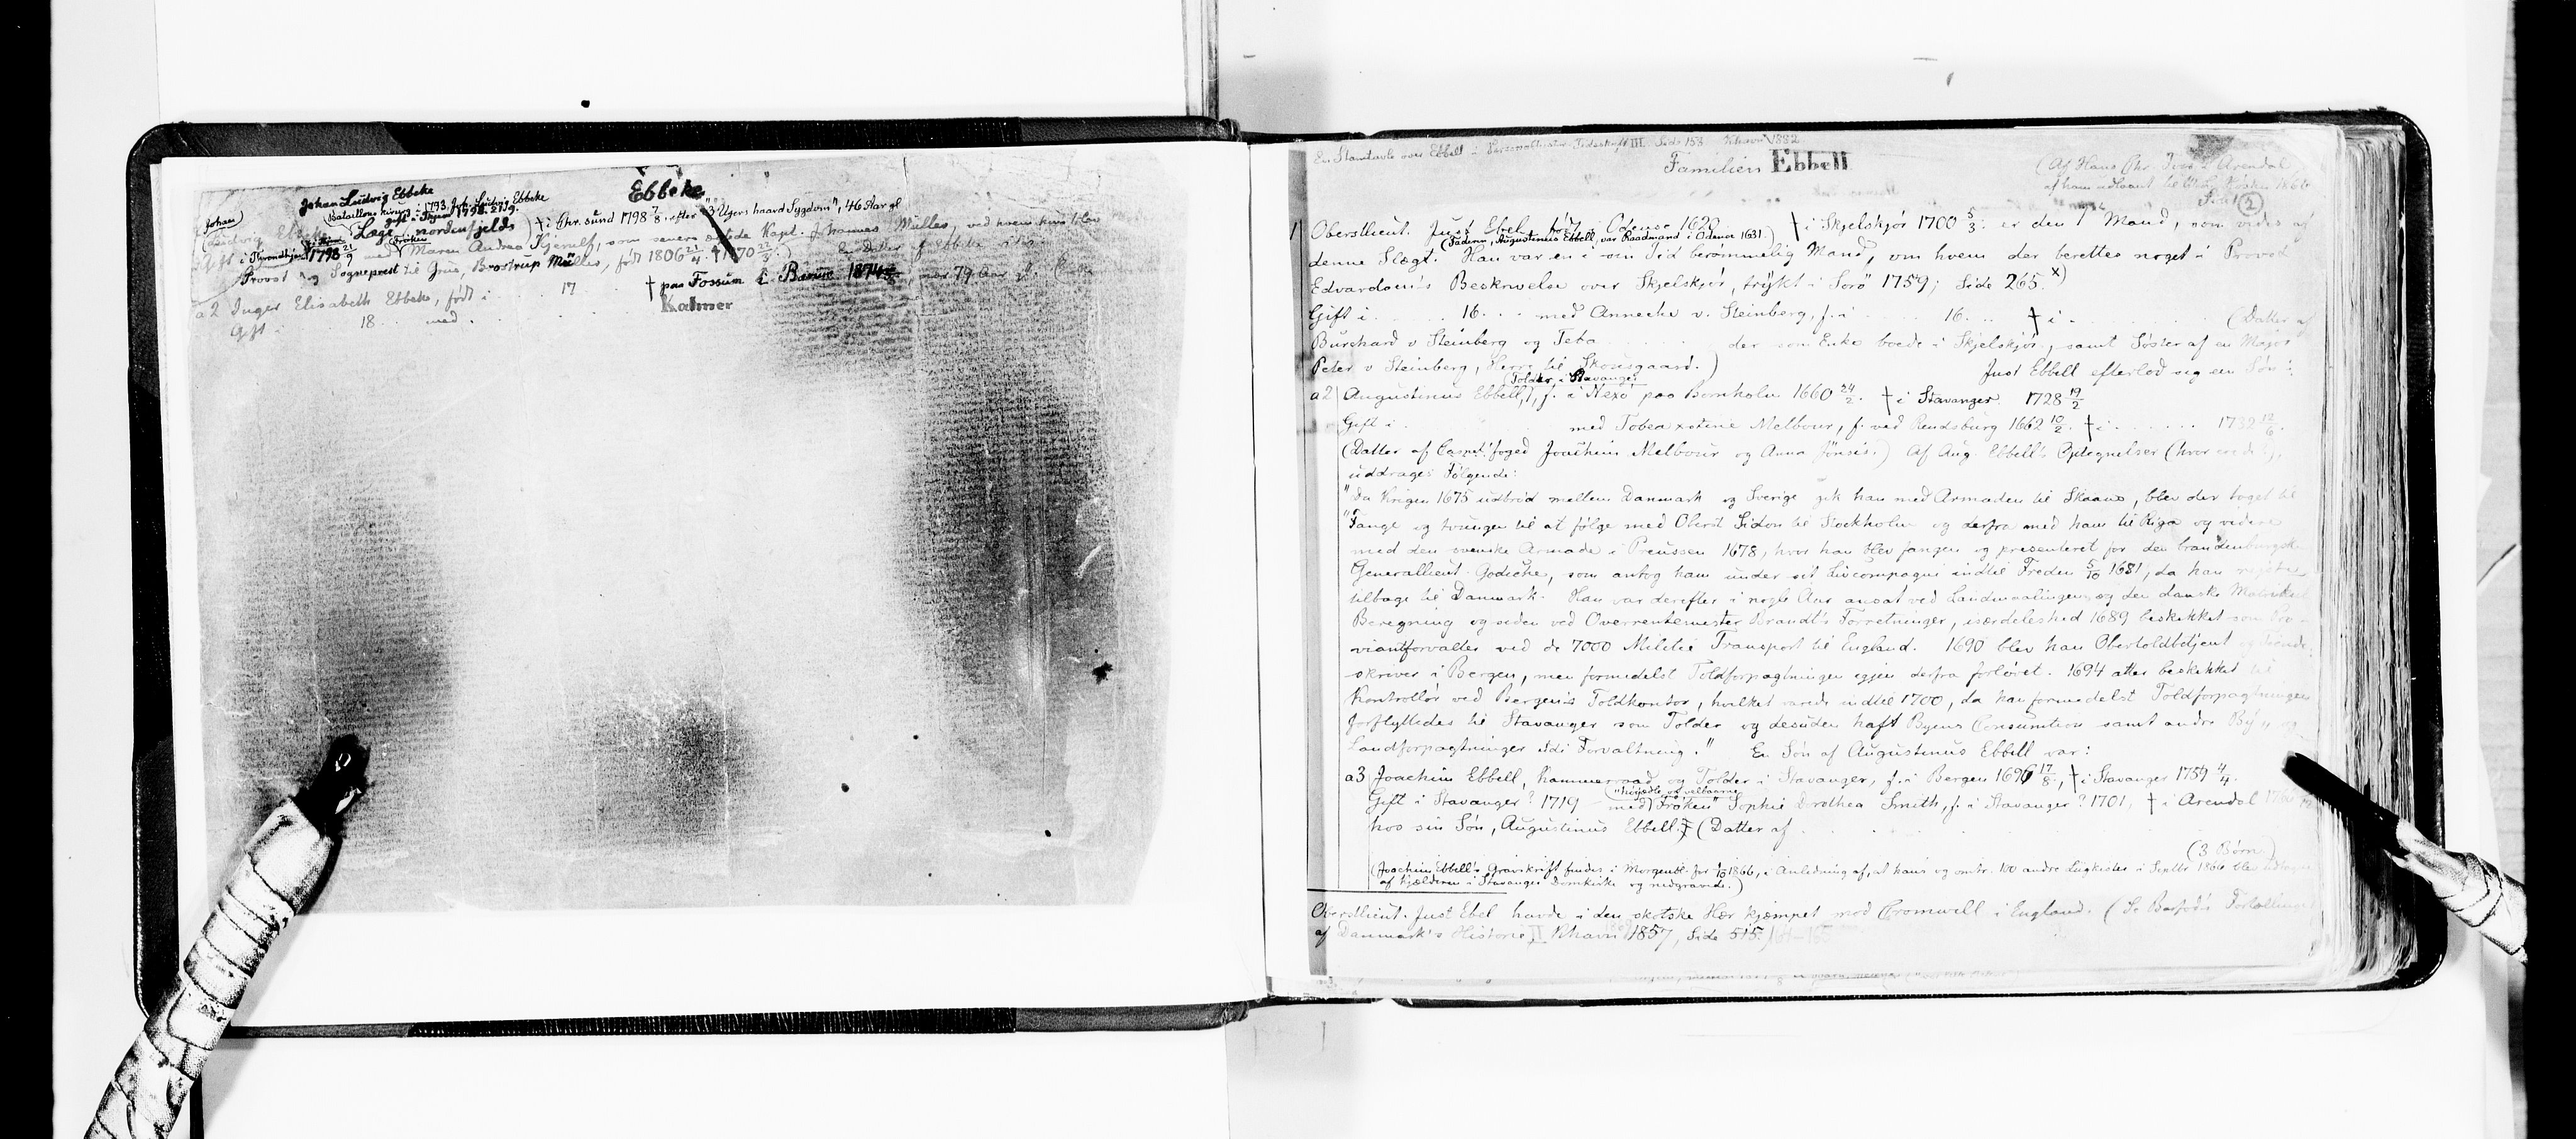 Ebbeke
Johan Ludvig Ebbeke
Bataillons kirurg i 1793 Joh. Ludvig Ebbeke
(Johan)
gift i 1798 21/9.
Ludvig Ebbeke Læge nordenfjelds) † i Chr.sund 1798 7/8 efter "3 Ugers haard Sygdom", 46 Aar gl
Gift i Throndhjem 1798 21/9 med Maren Andrea Hjerulf, som senere ægtede Kapt. Johannes Müller,
Provst og Sogneprest til Grue, Brostrup Müller, født 1806 21/4 † 1870 22/3.)
† paa Fossum i Bærum 1874, nær 79 Aar gl.
a 2 Inger Elisabeth Ebbeke, født i 17
Kalmer
Gift i 18 med
En Stamtavle over Ebbell i Personalhistor. Tidsskrift III. Side 158 Khavn 1882
Familien Ebbell
(Af Hans Chr. Arendal
af ham udlaant til 1866
Side 2
1 Oberstlieut. Just Ebel født i Odense 1620 † i Skjelskjør 1700 5/3: er den 1 Mand, som vides af
(Faderen, Augustinus Ebbell, var Raadmand i Odense 1631.)
denne Slægt. Han var en i sin Tid berømmelig Mand, om hvem der berettes noget i Provst
Edvardsen's Beskrivelse over Skjelskjør, trykt i Sorø 1759; Side 265. x)
Gift i 16 med Annecke v. Steinberg, f. i 16 † i (Datter af
Burchard v Steinberg og Teba der som Enke boede i Skjelskjør, samt Søster af en Major
Peter v Steinberg, Herre til Skousgaard.) Just Ebbell efterlod sig en Søn:
(Tolder i Stavanger
a2 Augustinus Ebbell,), f. i Nexø paa Bornholm 1660 24/2. † i Stavanger 1728 19/2
Gift i med Tobea xstine Melbour, f. ved Rendsburg 1662 10/2. † i 1732 12/6.
(Datter af foged Joachim Melbour og Anna Jönsis.) Af Aug. Ebbell's Optegnelser (hvor ere de?),
uddrages Følgende:
"Da Krigen 1675 udbrød mellem Danmark og Sverige gik han med Armeden til Skaane, blev der taget til
"Fange og tvungen til at følge med Oberst Sidon til Stockholm og derfra med ham til Riga og videre
med den svenske Armade i Preussen 1678, hvor han blev fangen og presenteret for den brandenburgsk.
Generallieut. Godiche, som antog ham under sit Livcompagni indtil Freden 5/10 1681, da han rejste
tilbage til Danmark. Han var derefter i nogle Aar ansat ved Landmaalingen og den danske Matrikul
Beregning og siden ved Overrentemester Brandt's Forretninger, især deleshed 1689 beskikket som Pro-
viantforvalter ved de 7000 Militie Transport til England. 1690 blev han Obertoldbetjent og
skriver i Bergen, men formedelst Toldforpagtningen igjen derfra forløvet. 1694 atter beskikket til
Kontrollør ved Bergen's Toldkontor, hvilket varede indtil 1700, da han formedelst Toldforpagtningen
forflyttedes til Stavanger som Tolder og desuden haft Byens Consumtion samt andre By og
Landforpagtninger i Forvaltning." En Søn af Augustinus Ebbell var:
a3 Joachim Ebbell, Kammerraad og Tolder i Stavanger, f. i Bergen 1696 17/8, † i Stavanger 1759 4/4.
"høiædle og velbaarne
Gift i Stavanger? 1719 med Frøken" Sophie Dorothea Smith, f. i Stavanger? 1701, † i Arendal
hos sin Søn, Augustinus Ebbell. (Datter af
(3 Børn)
(Joachim Ebbell's Gravskrift findes i Morgenbl. for 1/10 1866, i Anledning af, at hans og omtr. 100 andre Ligkister i Septbr 1866 blev
af kjælderen i Stavanger Domkirke og nedgravede.)
Oberstlieut. Just Ebel havde i den skotske Hær kjæmpet mod Cromwell i England. (Se Barfod's Fortællinger
af Danmark's Historie II Khavn 1857, Side 515.)